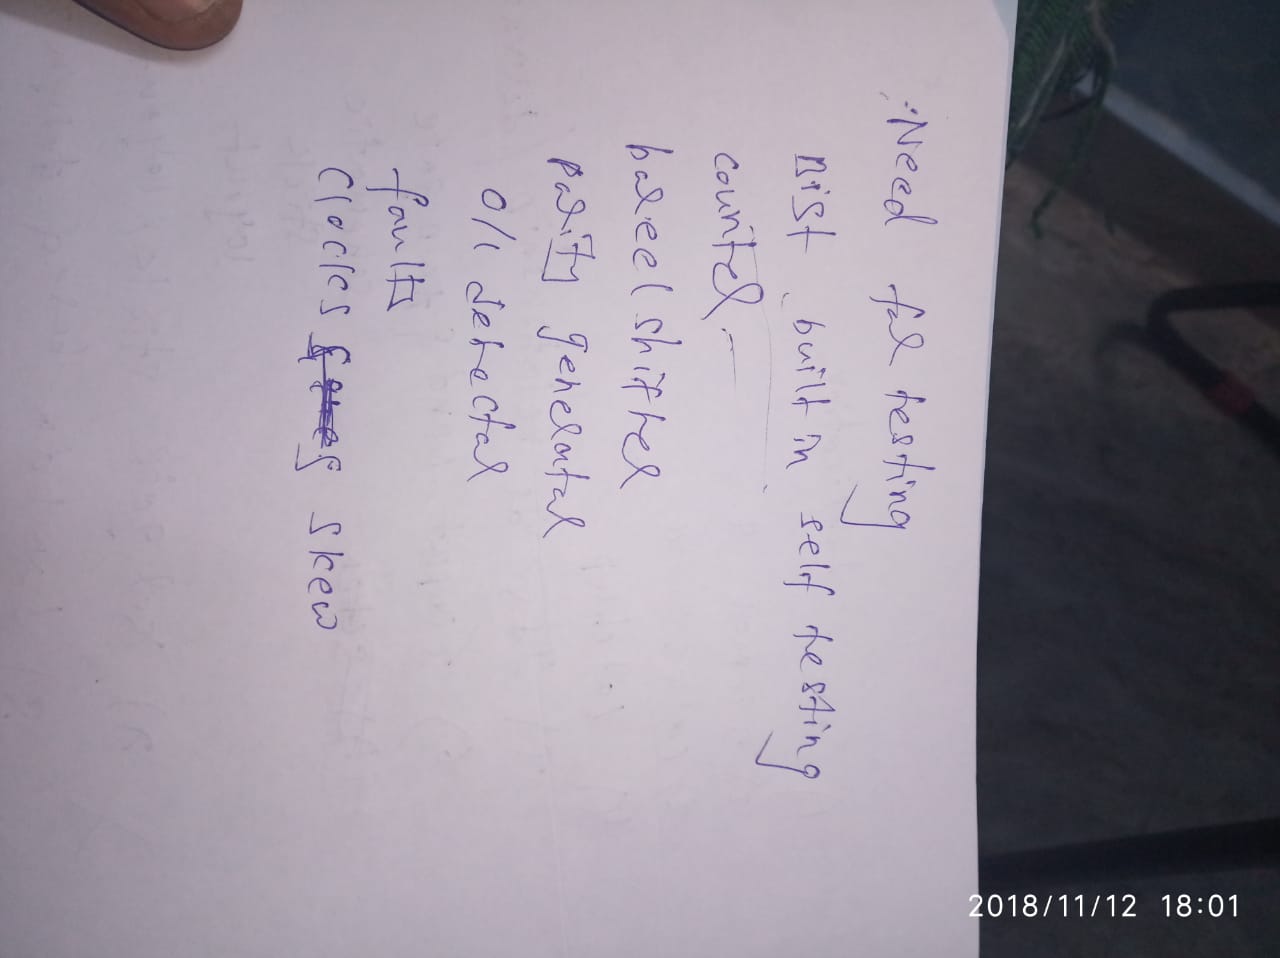 Need for testing
Bist built in self testing
counter
bareel shifter
parity generator
0/1 detector
faults
Clocks skew
2018/11/12 18:01